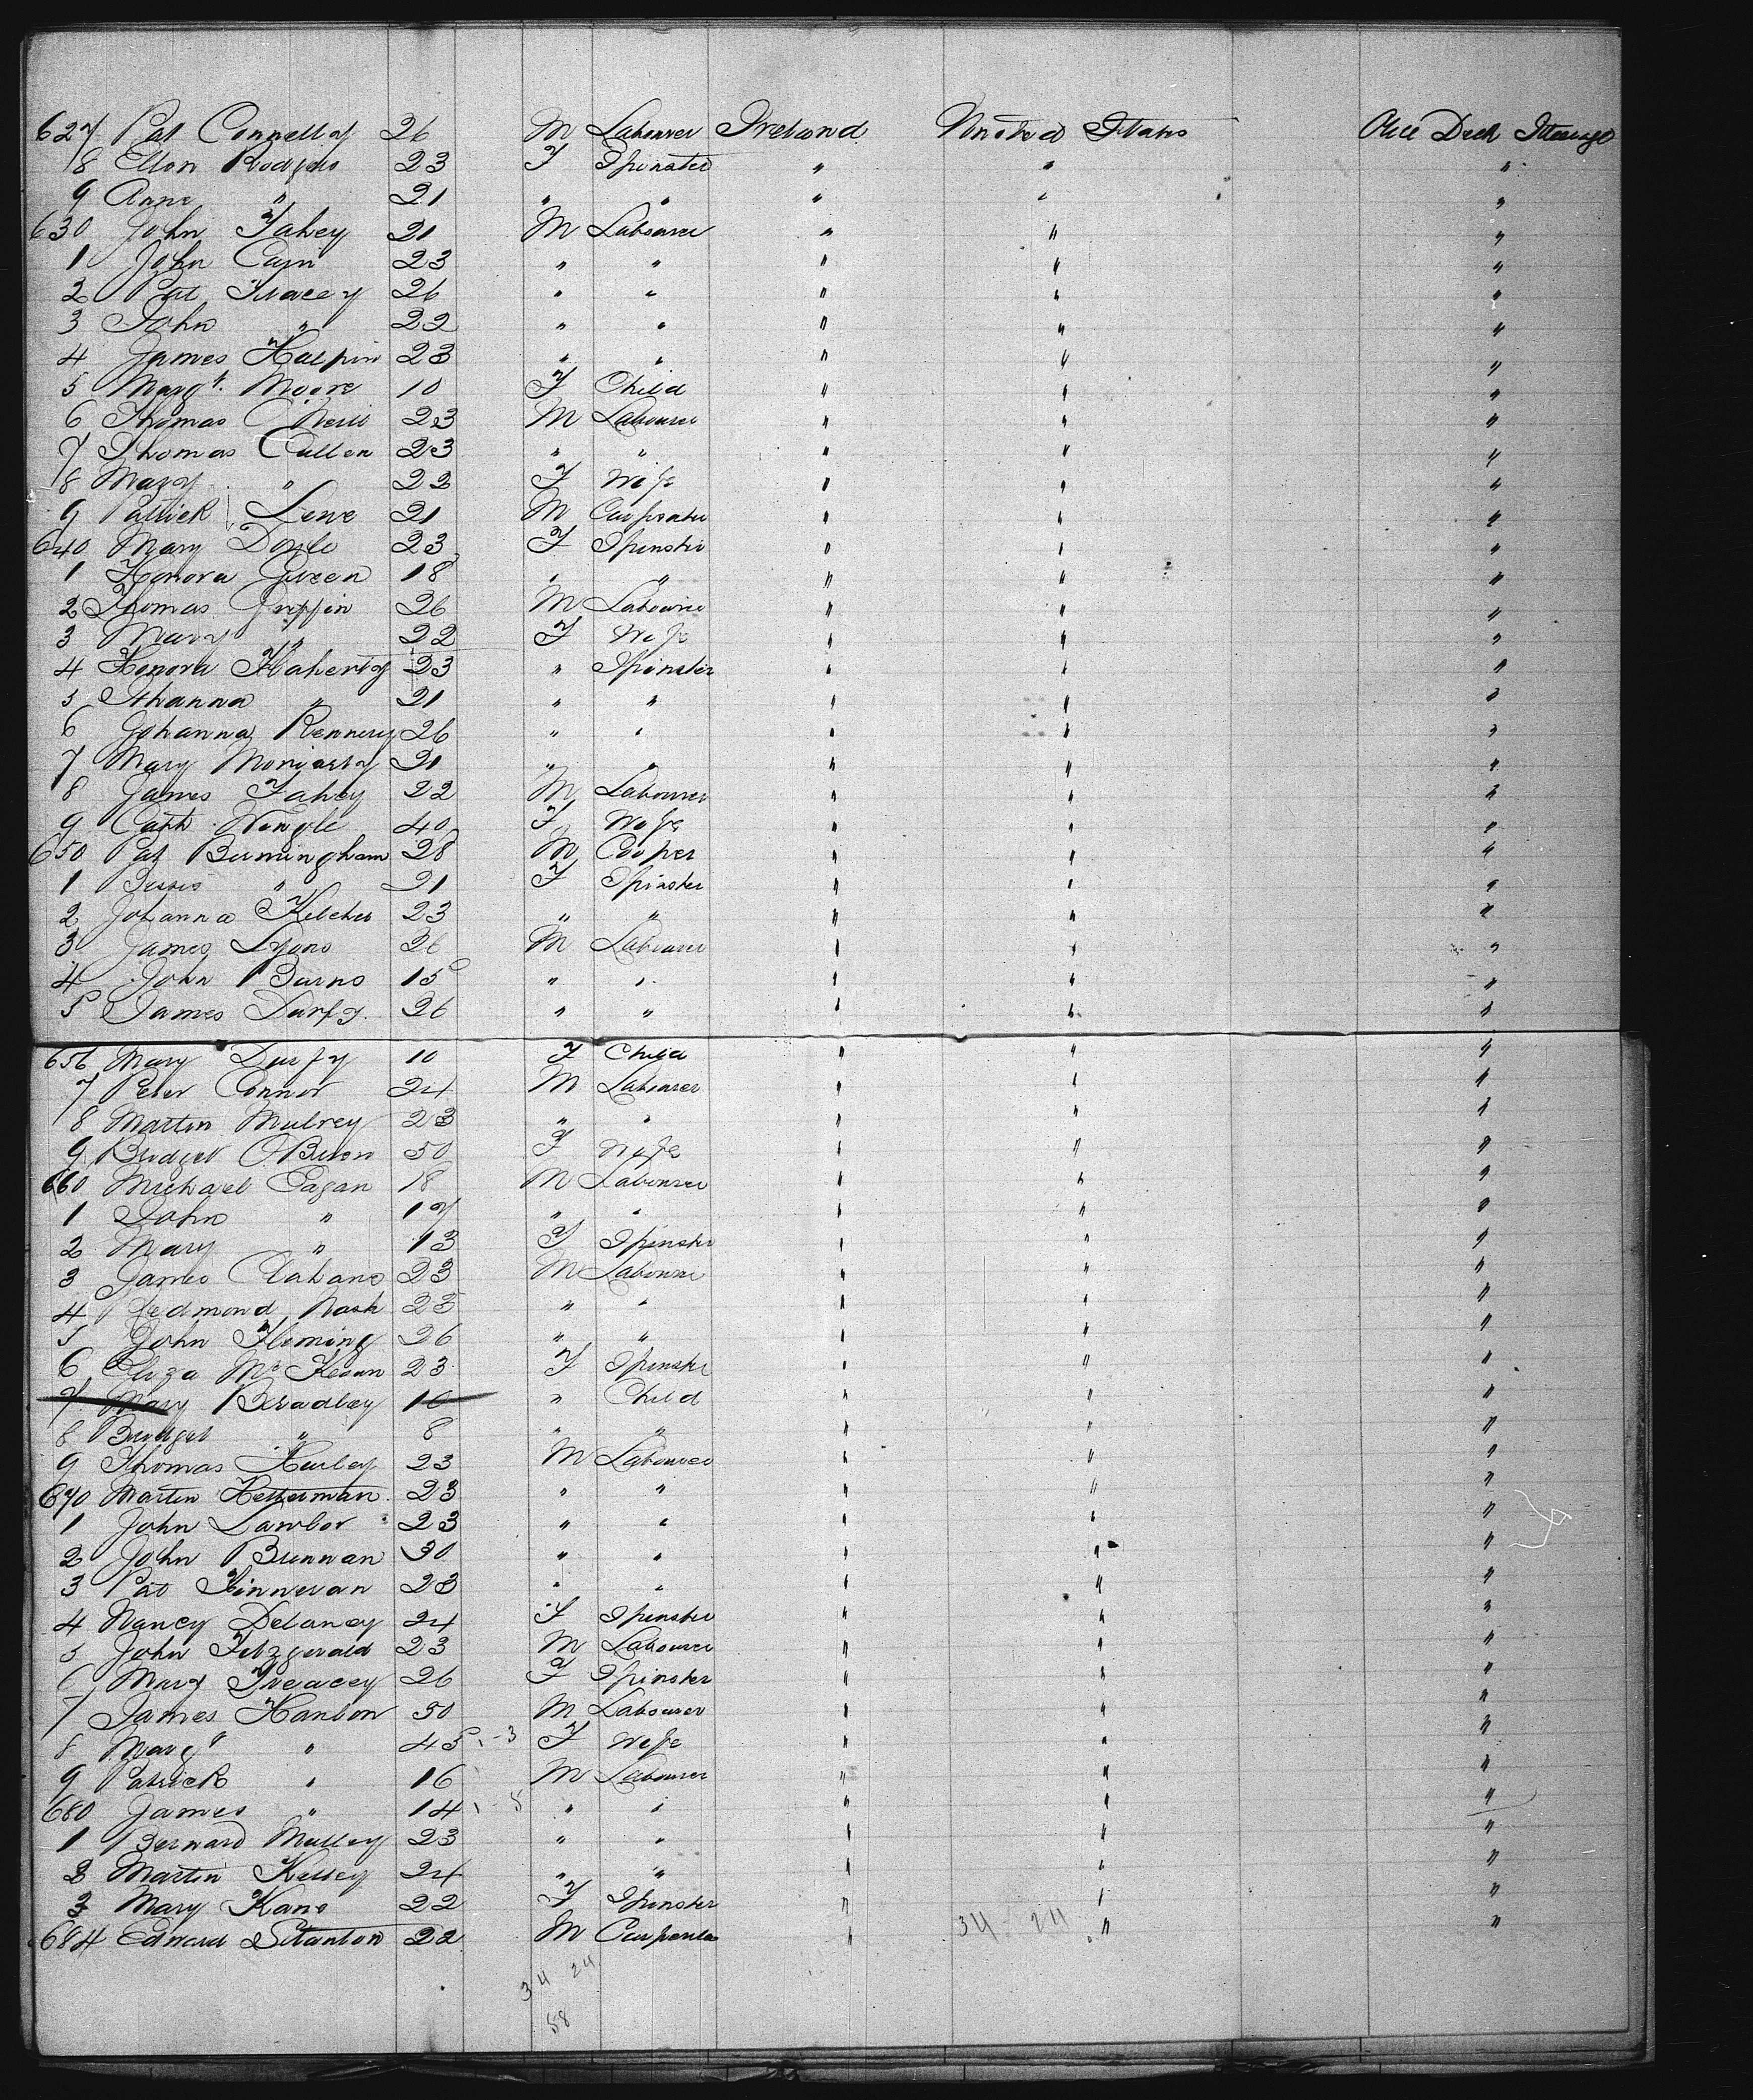 627 Pat Connelly 26 M Labourer Ireland United States After Deck Steerage
8 Ellen Rodgers 23 F Spinster " " "
9 Anne " 21 " " " " "
630 John Fahey 21 M Labourer " " "
1 John Cain 23 " " " " "
2 Pat Tracey 26 " " " " "
3 John " 22 " " " " "
4 James Halpin 23 " " " " "
5 Margt. Moore 10 F Child " " "
6 Thomas ONeill 23 M Labourer " " "
7 Thomas Cullen 23 " " " " "
8 Mary " 22 F Wife " " "
9 Patrick Lene 21 M Carpenter " " "
640 Mary Doyle 23 F Spinster " " "
1 Honora Green 18 " " " " "
2 Thomas Griffin 26 M Labourer " " "
3 Mary " 22 F Wife " " "
4 Honora Flaherty 23 " Spinster " " "
5 Johanna " 21 " " " " "
6 Johanna Kennery 26 " " " " "
7 Mary Moriarty 21 " " " " "
8 James Fahey 22 M Labourer " " "
9 Cath Wingle 40 F Wife " " "
650 Pat Bermingham 28 M Cooper " " "
1 Bessie " 21 F Spinster " " "
2 Johanna Kelcher 23 " " " " "
3 James Lyons 26 M Labourer " " "
4 John Barns 15 " " " " "
5 James Durfy 26 " " " " "
656 Mary Durfy 10 F Child " " "
7 Peter Connor 24 M Labourer " " "
8 Martin Mulrey 23 " " " " "
9 Bridget OBrien 50 F Wife " " "
660 Michael Eagan 18 M Labourer " " "
1 John " 17 " " " " "
2 Mary " 13 F Spinster " " "
3 James Clahane 23 M Labourer " " "
4 Redmond Nash 25 " " " " "
5 John Fleming 26 " " " " "
6 Eliza McKeown 23 F Spinster " " "
7 Mary Bradley 10 " Child " " "
8 Bridget " 8 " " " " "
9 Thomas Hurley 23 M Labourer " " "
670 Martin Kellerman 23 " " " " "
1 John Lawlor 23 " " " " "
2 John Brennan 30 " " " " "
3 Pat Finneran 23 " " " " "
4 Nancy Delaney 24 F Spinster " " "
5 John Fitzgerald 23 M Labourer " " "
6 Mary Treacey 26 F Spinster " " "
7 James Hanlon 50 M Labourer " " "
8 Margt " 45 - 3 F Wife " " "
9 Patrick " 16 M Labourer " " "
680 James " 14 - 5 " " " " "
1 Bernard Mulley 23 " " " " "
2 Martin Kelley 24 " " " " "
3 Mary Kane 22 F Spinster " " "
684 Edward Stanton 22 M Carpenter " 34 24 " "
34 24
58